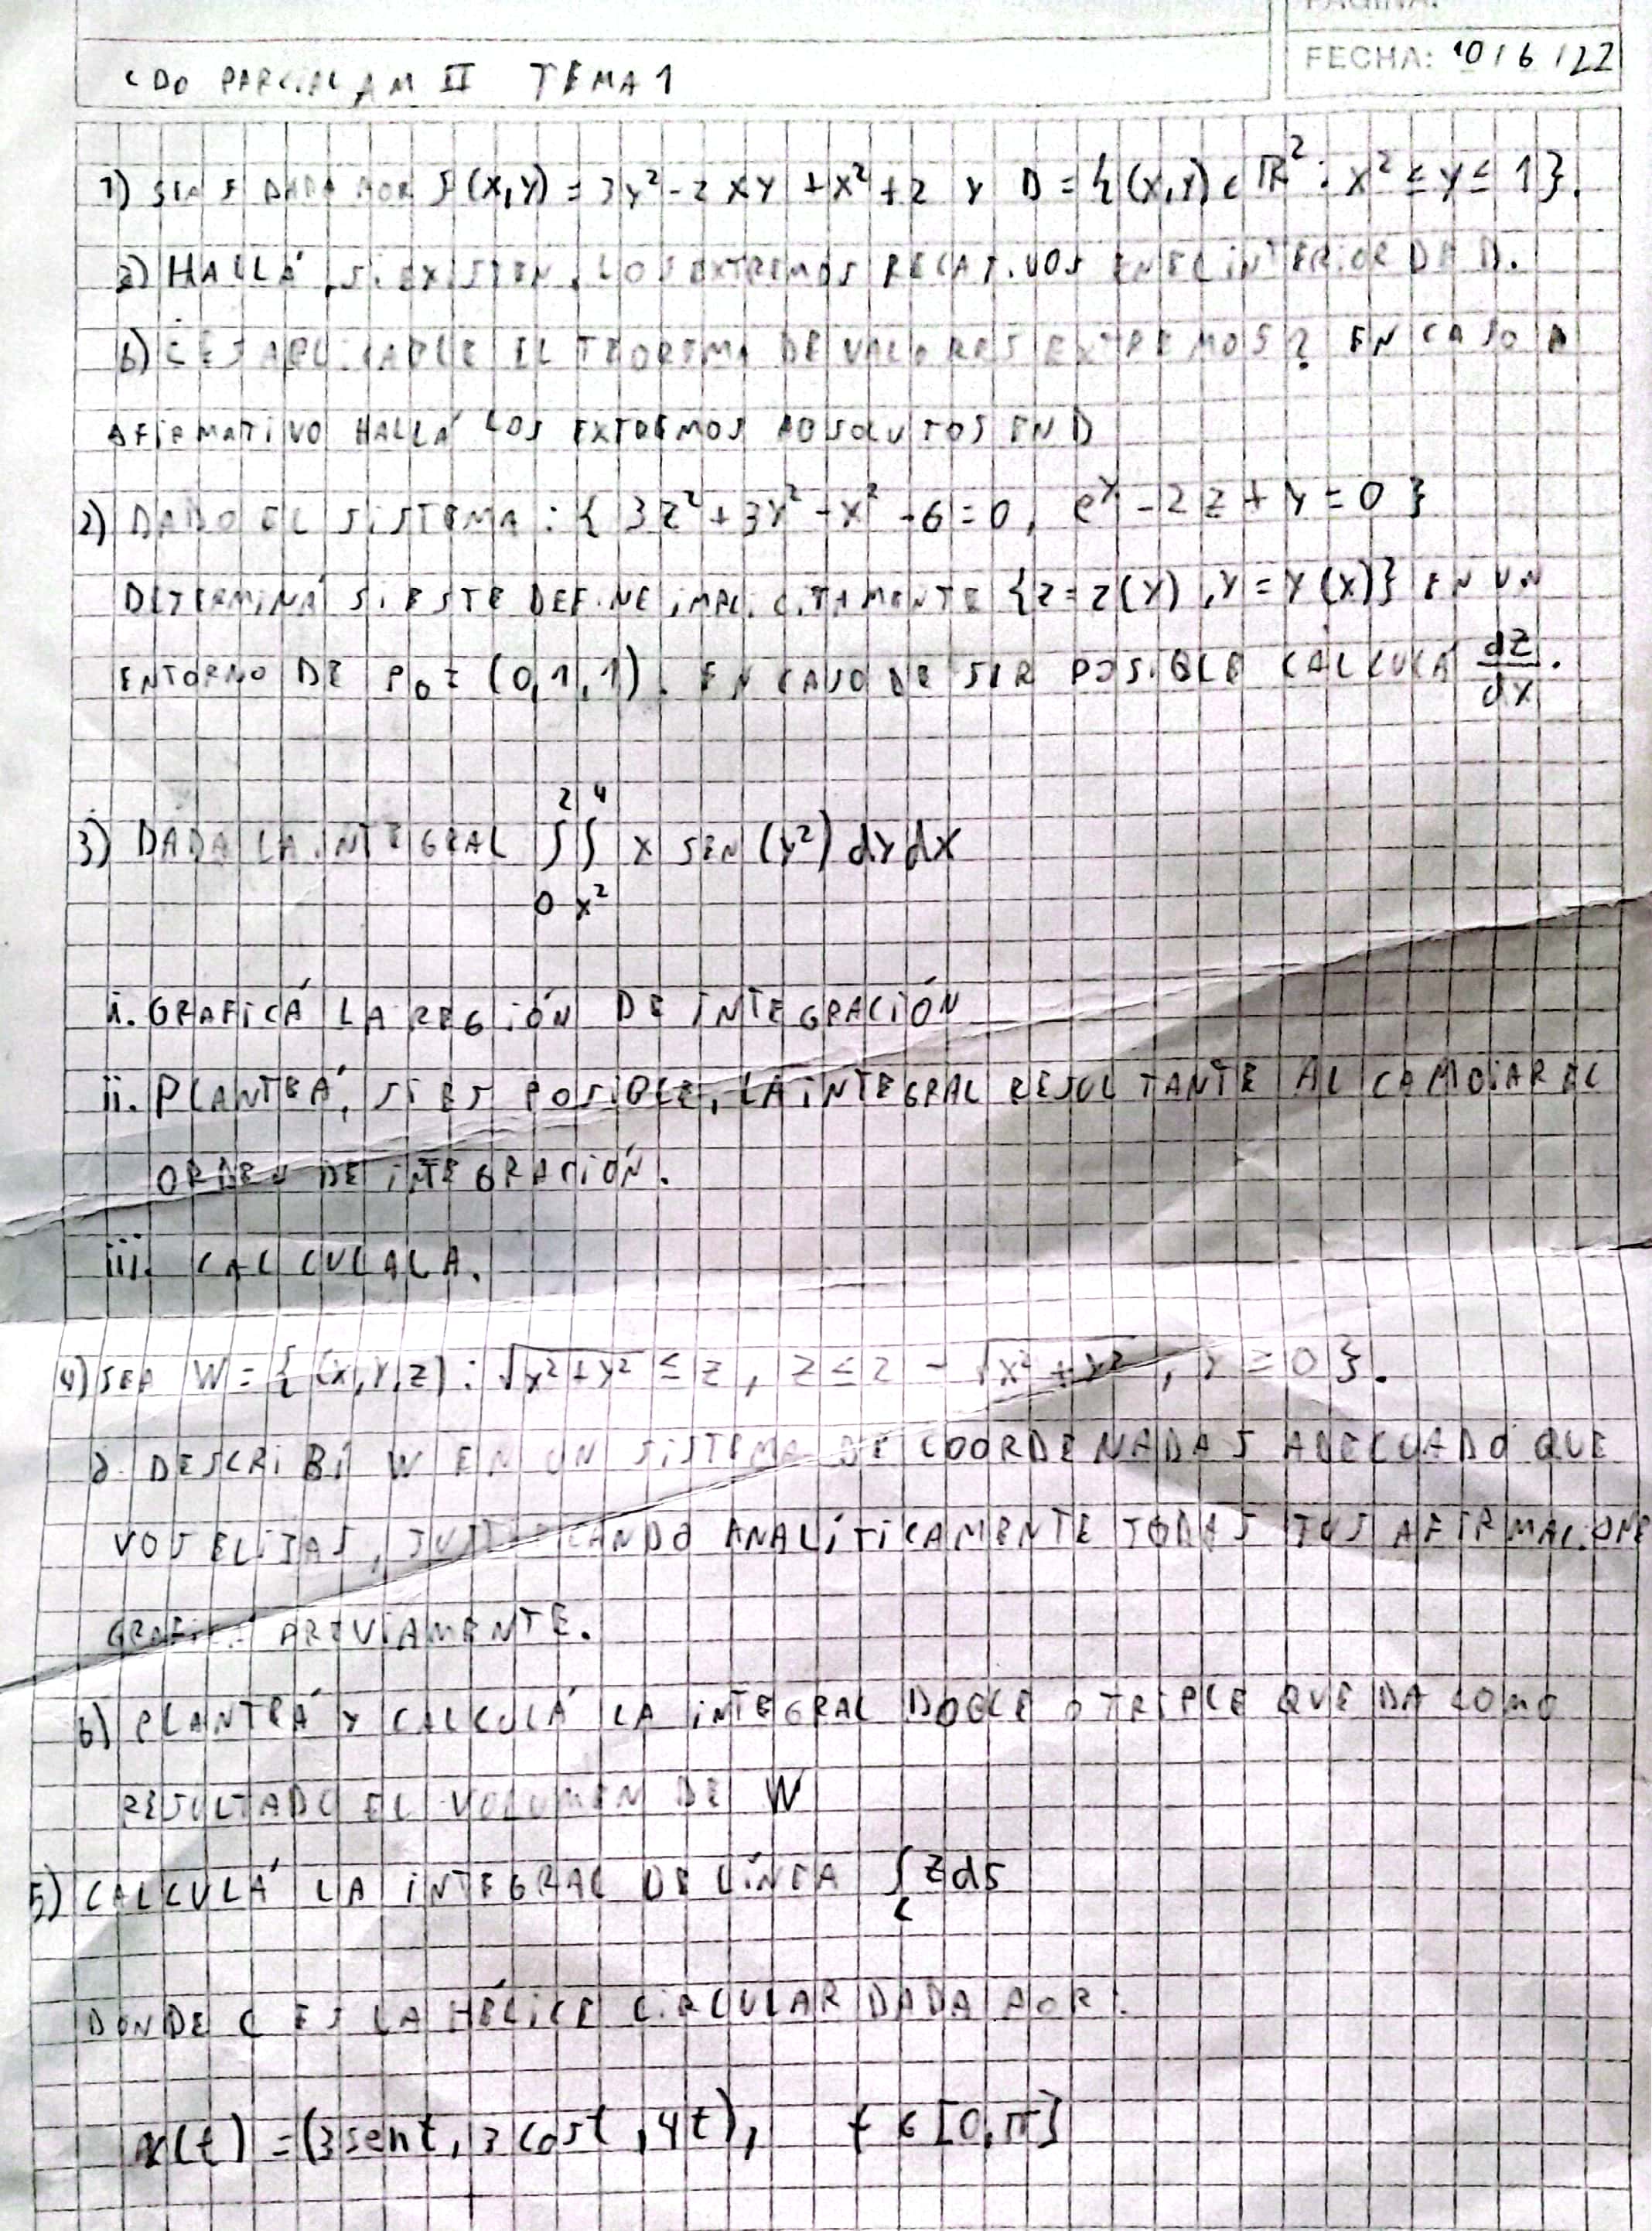 PÁGINA:
FECHA: 10/6/22
2DO PARCIAL AM II TEMA 1
1) SEA F DADA POR f(x,y) = 3y² - 2xy + x² + 2 y D = {(x,y) ∈ ℝ² : x² ≤ y ≤ 1}.
a) HALLÁ, SI EXISTEN, LOS EXTREMOS RELATIVOS EN EL INTERIOR DE D.
b) ¿ES APLICABLE EL TEOREMA DE VALORES EXTREMOS? EN CASO
AFIRMATIVO HALLÁ LOS EXTREMOS ABSOLUTOS EN D
2) DADO EL SISTEMA : { 3z² + 3y² - x² - 6 = 0, - 2z + y = 0 }
DETERMINÁ SI ESTE DEFINE IMPLICITAMENTE {z = z(y), y = y(x)} EN UN
ENTORNO DE P₀ = (0,1,1). EN CASO DE SER POSIBLE CALCULÁ dz/dx.
3) DADA LA INTEGRAL ∫₀² ∫ₓ²⁴ x SEN (y²) dy dx
i. GRAFICÁ LA REGIÓN DE INTEGRACIÓN
ii. PLANTEÁ, SI ES POSIBLE, LA INTEGRAL RESULTANTE AL CAMBIAR EL
ORDEN DE INTEGRACIÓN.
iii. CALCULALA.
4) SEA W = {(x,y,z) : √x²+y² ≤ z, z ≤ 2 - √x²+y², y ≥ 0}.
a. DESCRIBÍ W EN UN SISTEMA DE COORDENADAS ADECUADO QUE
VOS ELIJAS, JUSTIFICANDO ANALÍTICAMENTE TODAS TUS AFIRMACIONE
GRAFICÁ PREVIAMENTE.
b) PLANTEÁ Y CALCULÁ LA INTEGRAL DOBLE O TRIPLE QUE DA COMO
RESULTADO EL VOLUMEN DE W
5) CALCULÁ LA INTEGRAL DE LÍNEA ∫c z ds
DONDE C ES LA HÉLICE CIRCULAR DADA POR:
α(t) = (3 sen t, 3 cos t, 4t), t ∈ [0,π]